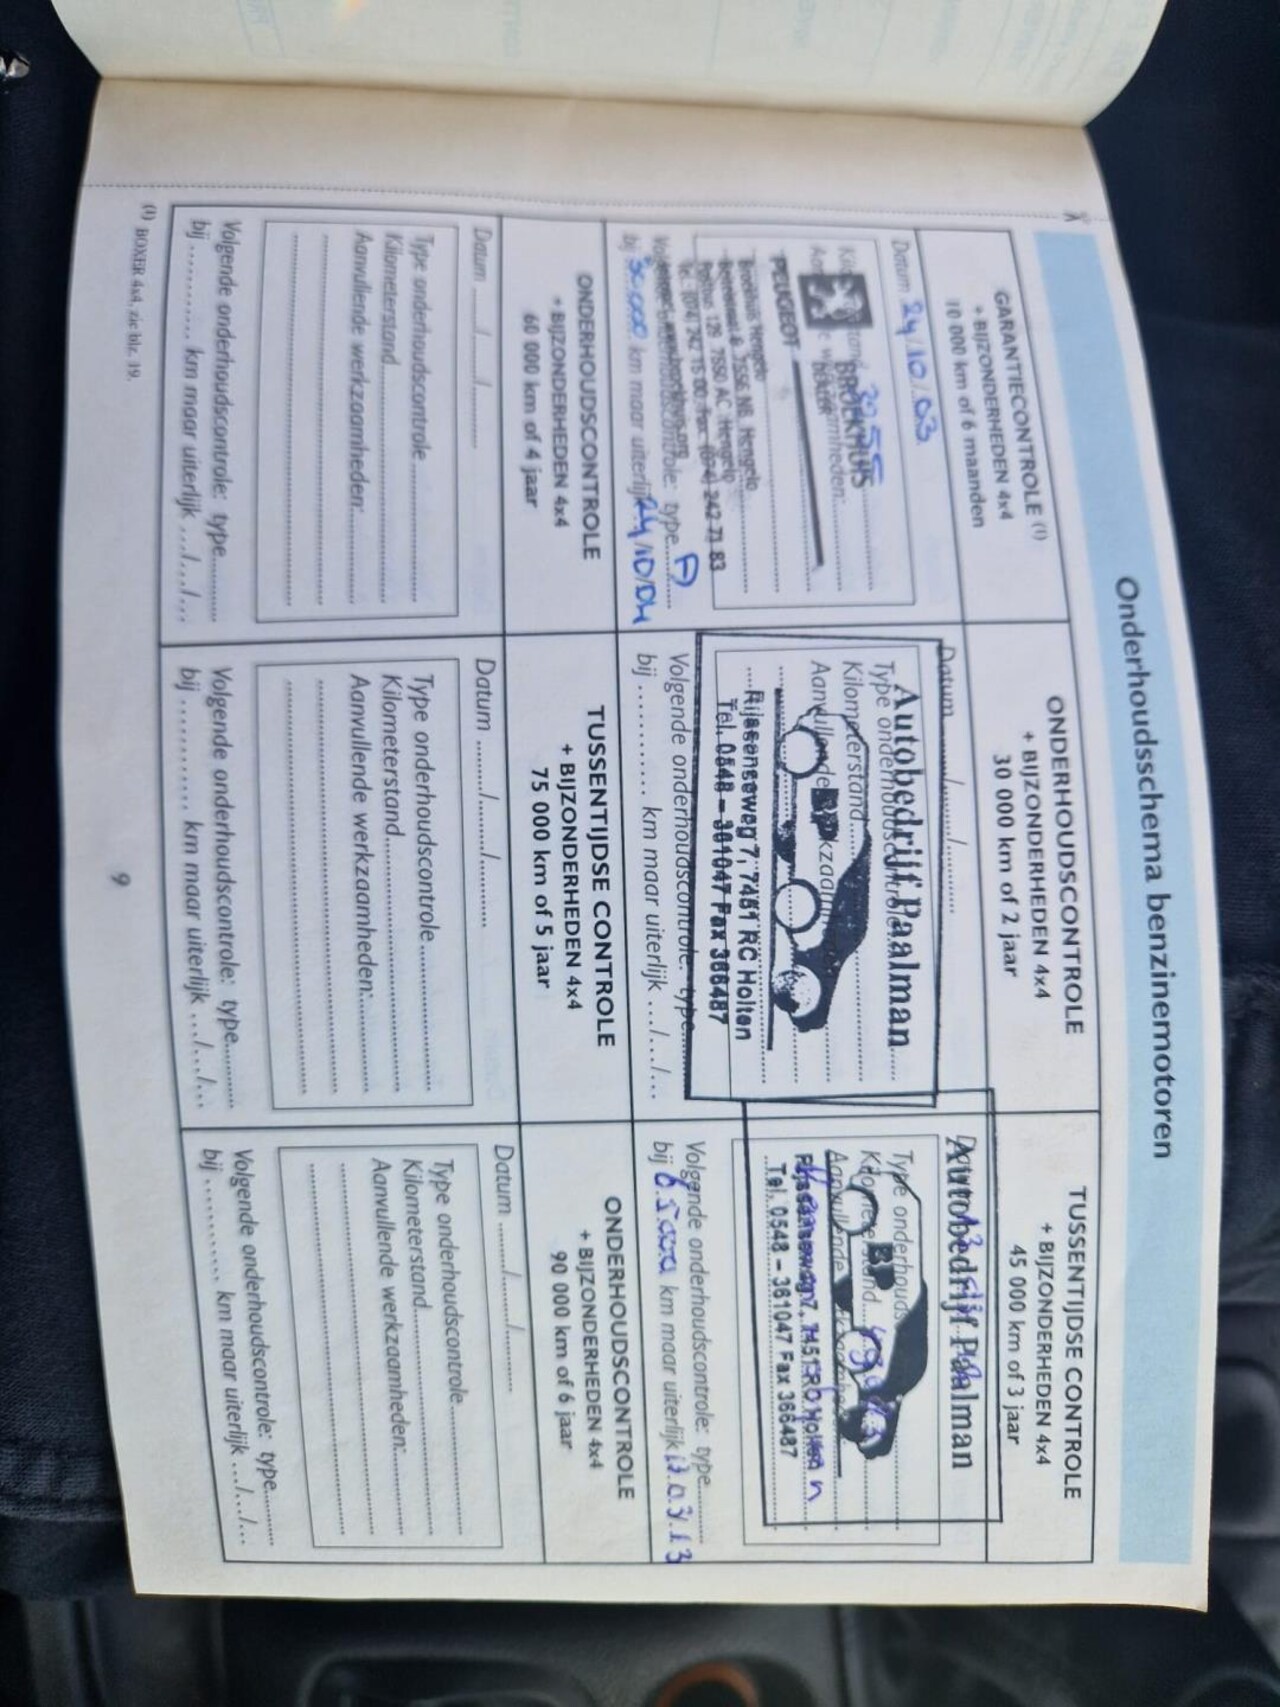 Onderhoudsschema benzinemotoren
GARANTIECONTROLE (1)
+ BIJZONDERHEDEN 4x4
10 000 km of 6 maanden
Datum 24/10/03
3255
BROEKHUIS
PEUGEOT
Broekhuis Hengelo
7556 NB Hengelo
Postbus 129 7550 AC Hengelo
Tel. (074) 242 75 00 Fax (074) 242 71 83
Volgende onderhoudscontrole: type A
bij 30.000 km maar uiterlijk 24/10/04
ONDERHOUDSCONTROLE
+ BIJZONDERHEDEN 4x4
30 000 km of 2 jaar
Datum ...../...../..........
Autobedrijf Paalman
Type onderhoudscontrole
Kilometerstand
Aanvullende werkzaamheden
BP
Rijssenseweg 7, 7451 RC Holten
Tel. 0548 - 361047 Fax 366487
Volgende onderhoudscontrole: type
bij .......... km maar uiterlijk .../.../...
TUSSENTIJDSE CONTROLE
+ BIJZONDERHEDEN 4x4
45 000 km of 3 jaar
Autobedrijf Paalman
Type onderhouds
Kilometerstand
Aanvullende
BP
Rijssenseweg 7, 7451 RC Holten
Tel. 0548 - 361047 Fax 366487
Volgende onderhoudscontrole: type
bij km maar uiterlijk
ONDERHOUDSCONTROLE
+ BIJZONDERHEDEN 4x4
60 000 km of 4 jaar
Datum ...../...../..........
Type onderhoudscontrole
Kilometerstand
Aanvullende werkzaamheden:
Volgende onderhoudscontrole: type
bij .......... km maar uiterlijk .../.../...
TUSSENTIJDSE CONTROLE
+ BIJZONDERHEDEN 4x4
75 000 km of 5 jaar
Datum ...../...../..........
Type onderhoudscontrole
Kilometerstand
Aanvullende werkzaamheden:
Volgende onderhoudscontrole: type
bij .......... km maar uiterlijk .../.../...
ONDERHOUDSCONTROLE
+ BIJZONDERHEDEN 4x4
90 000 km of 6 jaar
Datum ...../...../..........
Type onderhoudscontrole
Kilometerstand
Aanvullende werkzaamheden:
Volgende onderhoudscontrole: type
bij .......... km maar uiterlijk .../.../...
(1) BOXER 4x4, zie blz. 19.
9